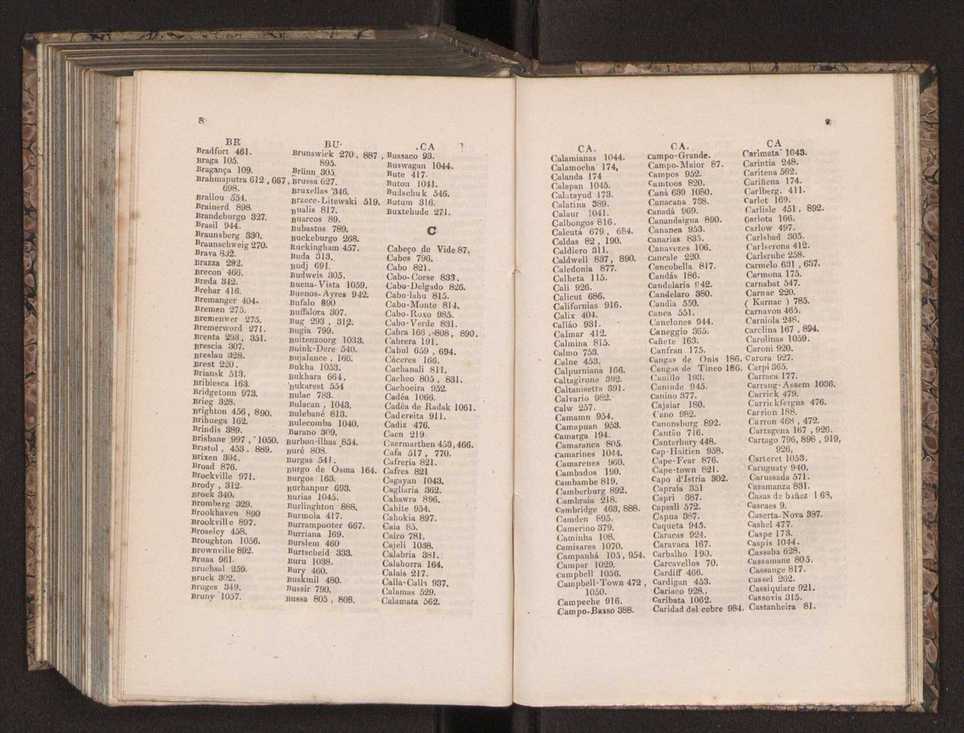 8
BR
Bradfort 461.
Braga 105.
Bragança 109.
Brahmaputra 612, 667,
698.
Brailou 554.
Brainerd 898.
Brandeburgo 327.
Brasil 944.
Braunsberg 330.
Braunschweig 270.
Brava 832.
Brazza 292.
Brecon 466.
Breda 342.
Brehar 416.
Bremanger 404.
Bremen 275.
Bremenwer 275.
Bremerword 271.
Brenta 293, 351.
Brescia 307.
Breslau 328.
Brest 220.
Briansk 513.
Briblesca 163.
Bridgetown 973.
Brieg 328.
Brighton 456, 890.
Brihuega 162.
Brindis 389.
Brisbane 997, 1050.
Bristol, 453. 889.
Brixen 304.
Broad 876.
Brockville 971.
Brody, 312.
Broek 340.
Bromberg 329.
Brookhaven 890
Brookville 897.
Broseley 458.
Broughton 1056.
Brownville 892.
Brusa 961.
Bruchsal 259.
Bruck 302.
Bruges 349.
Bruny 1057.
BU
Brunswick 270, 887,
895.
Brünn 305.
Brussa 627.
Bruxellas 346.
Brzece-Litewski 519.
Bualis 817.
Buarcos 89.
Bubastos 789.
Buckeburgo 268.
Buckingham 457.
Buda 313.
Budj 691.
Budweis 305.
Buena-Vista 1059.
Buenos-Ayres 942.
Bufalo 890
Buffalora 307.
Bug 293, 312.
Bugia 799.
Buitenzoorg 1033.
Buink-Dere 540.
Bujalance, 166.
Bukha 1053.
Bukhara 664.
Bukarest 554
Bulac 783.
Bulacan, 1043.
Bulebané 813.
Bulecomba 1040.
Burano 309.
Burbon-ilhas 834.
Buré 808.
Burgas 541.
Burgo de Osma 164.
Burgos 163.
Burhanpur 693.
Burias 1045.
Burlinghton 888.
Burmola 417.
Burrampooter 667.
Burriana 169.
Burslem 460
Burtscheid 333.
Buru 1038.
Bury 460.
Buskmil 480.
Bussir 790.
Bussa 805, 808.
CA
Bussaco 93.
Buswagan 1044.
Bute 417.
Buton 1041.
Butschuk 546.
Butum 316.
Buxtehude 271.
C
Cabeço de Vide 87.
Cabes 796.
Cabo 821.
Cabo-Corse 833.
Cabo-Delgado 826.
Cabo-lahu 815.
Cabo-Monte 814.
Cabo-Roxo 985.
Cabo-Verde 831.
Cabra 166, 808, 890.
Cabrera 191.
Cabul 659, 694.
Cáceres 166.
Cachanali 811.
Cacheo 805, 831.
Cachoeira 952.
Cadéa 1066.
Cadêa de Radak 1061.
Cadereita 911.
Cadiz 476.
Caen 219.
Caermarthen 453, 466.
Cafa 517, 770.
Cafreria 821.
Cafres 821
Cagayan 1043.
Cagliaria 362.
Cahawra 896.
Cahite 954.
Cahokia 897.
Caia 85.
Cairo 781.
Cajeli 1038.
Calabria 381.
Calahorra 164.
Calais 217.
Calla-Calla 937.
Calamas 529.
Calamata 562.
CA.
Calamianas 1044.
Calamocha 174,
Calanda 174
Calapan 1045.
Calatayud 173.
Calatina 389.
Calaur 1041.
Calbongos 816.
Calcutá 679, 684.
Caldas 82, 190.
Caldiero 311.
Caldwell 837, 890.
Caledonia 877.
Calheta 115.
Cali 926.
Calicut 686.
Californias 916.
Calix 404.
Callião 931.
Calmar 412.
Calmina 815.
Calmo 753.
Calne 453.
Calpurniana 166.
Caltagirone 392.
Caltanisetta 391.
Calvario 982.
Calw 257.
Camamn 954.
Camapuan 953.
Camarga 194.
Camaranca 805.
Camarines 1044.
Camarenes 960.
Cambados 190.
Cambambe 819.
Camberburg 892.
Cambraia 218.
Cambridge 463, 888.
Camden 895.
Camerino 379.
Caminha 108.
Camisares 1070.
Campanhá 105, 954.
Campar 1029.
Campbell 1056.
Campbell-Town 472,
1050.
Campeche 916.
Campo-Basso 388.
CA.
Campo-Grande.
Campo-Maior 87.
Campos 952.
Camtoos 820.
Caná 630 1080.
Canacana 738.
Canadá 969.
Canandaigua 890.
Cananea 953.
Canarias 835.
Canavezes 106.
Cancale 220.
Cancobella 817.
Candás 186.
Candelaria 942.
Candelaro 380.
Candia 550.
Canea 551.
Canelones 944.
Caneggio 365.
Cañete 163.
Canfran 175.
Cangas de Onis 186.
Cangas de Tineo 186.
Canillo 193.
Caninde 945.
Canino 377.
Cajsiar 180.
Cano 982.
Canonsburg 892.
Cantão 716.
Canterbury 448.
Cap-Haitien 958.
Cape-Fear 876.
Cape-town 821.
Capo d'Istria 302.
Caprais 351
Capri 387.
Capsali 572.
Capua 387.
Caqueta 945.
Caracas 924.
Caravaca 167.
Carbalho 190.
Carcavellos 70.
Cardiff 466.
Cardigan 453.
Cariaco 928.
Caribata 1062.
Caridad del cobre 984.
CA
Carimata 1043.
Carintia 248.
Caritena 562.
Cariñena 174.
Carlberg. 411.
Carlet 169.
Carlisle 451, 892.
Carlota 166.
Carlow 497.
Carlsbad 305.
Carlscrona 412.
Carlsruhe 258.
Carmelo 631, 637.
Carmona 175.
Carnabat 547.
Carnar 220.
( Karnac ) 785.
Carnavon 465.
Carniola 248.
Carolina 167, 894.
Carolinas 1059.
Caroni 920.
Carora 927.
Carpi 365.
Carraca 177.
Carrang-Assem 1036.
Carrick 479.
Carrickfergus 476.
Carrion 188.
Carron 468, 472.
Cartagena 167, 926.
Cartago 796, 898, 919,
926,
Carteret 1053.
Caruguaty 940.
Carussada 571.
Casamanza 831.
Casas de bañez 168,
Cascaes 9.
Caserta-Nova 387.
Cashel 477.
Caspe 173.
Caspis 1044.
Cassaba 628.
Cassamane 805.
Cassange 817.
Cassel 262.
Cassiquiare 921.
Cassovia 315.
Castanheira 81.